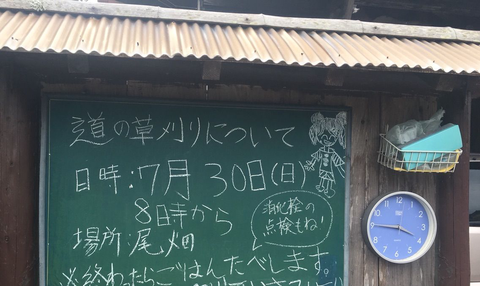 道の草刈りについて
日時:7月30日(日)
8時から
場所:尾畑
消火栓の
点検もね!
※終わったらごはんたべします。